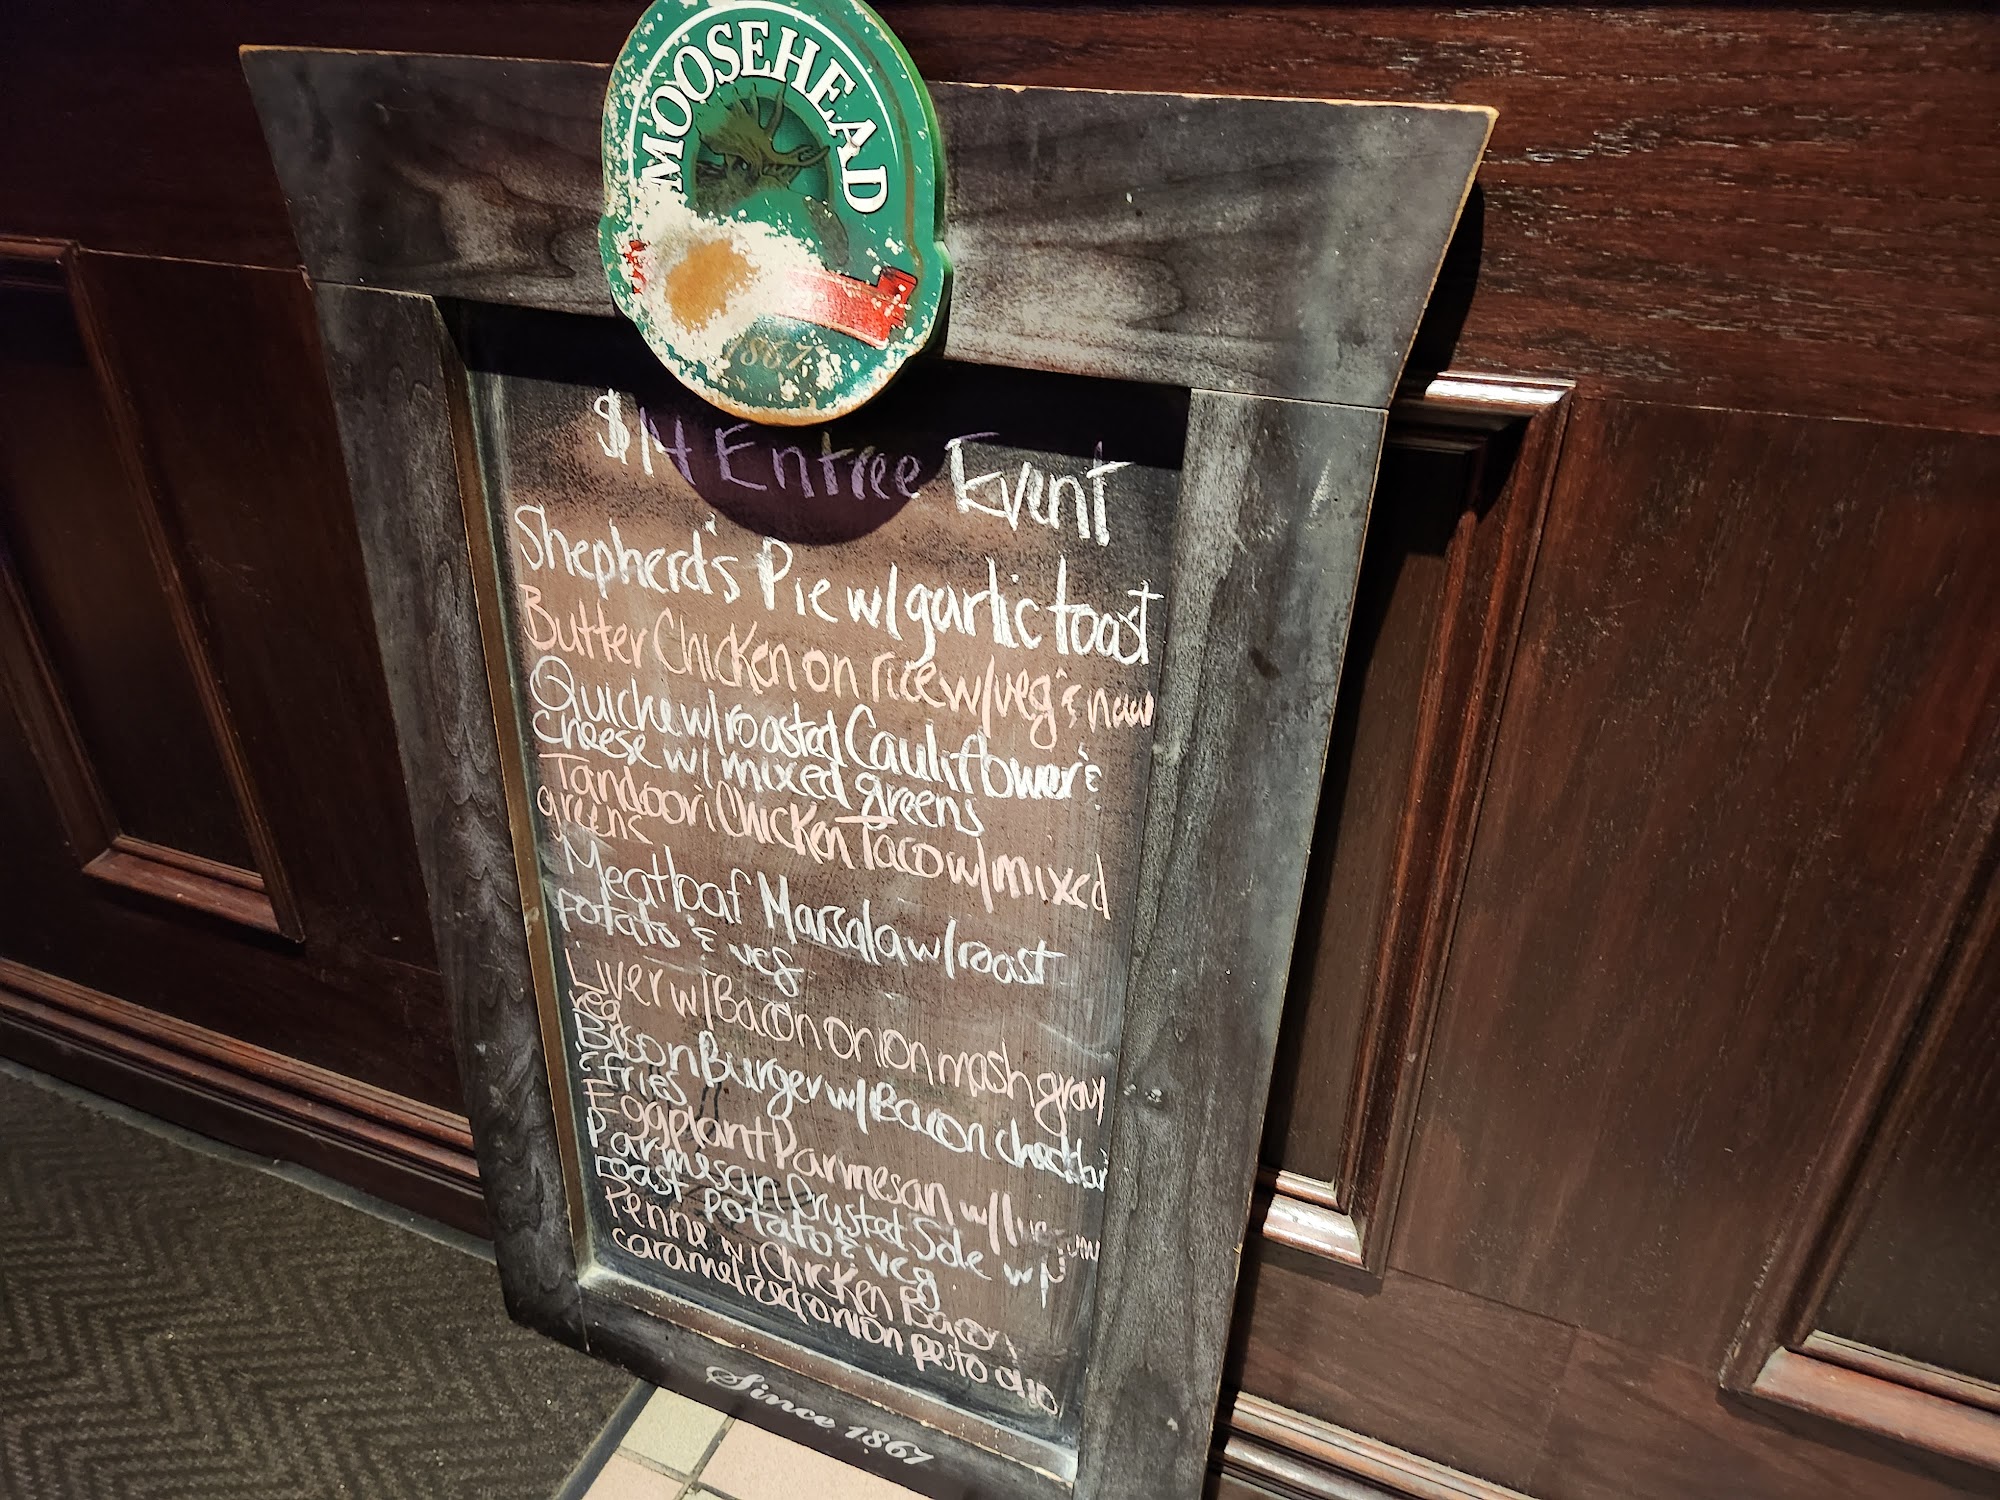 MOOSEHEAD
1867
$14 Entree Event
Shepherd's Pie w/garlic toast
Butter Chicken on rice w/veg & naan
Quiche w/roasted Cauliflower &
cheese w/mixed greens
Tandoori Chicken Taco w/mixed
greens
Meatloaf Marsala w/roast
potato & veg
Liver w/Bacon onion mash gravy
veg
Bison Burger w/Bacon cheddar
& fries
Eggplant Parmesan w/
Parmesan Crusted Sole w/
roast potato & veg
Penne w/Chicken Bacon
caramelized onion pesto aio
Since 1867